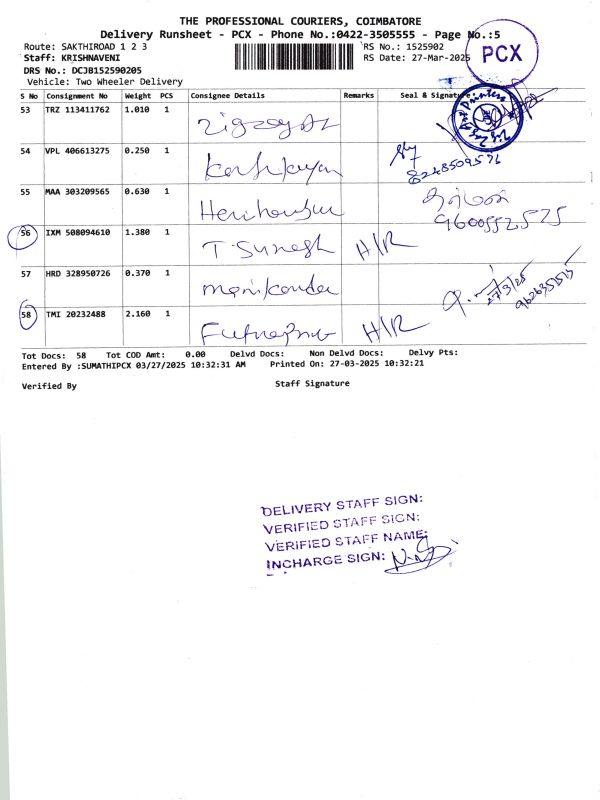 THE PROFESSIONAL COURIERS, COIMBATORE
Delivery Runsheet - PCX - Phone No.:0422-3505555 - Page No.:5
Route: SAKTHIROAD 1 2 3
RS No.: 1525902
PCX
Staff: KRISHNAVENI
RS Date: 27-Mar-2025
DRS No.: DCJB152590205
Vehicle: Two Wheeler Delivery
S No Consignment No Weight PCS Consignee Details Remarks Seal & Signature
53 TRZ 113411762 1.010 1
54 VPL 406613275 0.250 1
8248509576
55 MAA 303209565 0.630 1
9600552575
56 IXM 508094610 1.380 1 T. Suresh H/R
57 HRD 328950726 0.370 1 manikandan
27/3/25
58 TMI 20232488 2.160 1 H/R
Tot Docs: 58 Tot COD Amt: 0.00 Delvd Docs: Non Delvd Docs: Delvy Pts:
Entered By :SUMATHIPCX 03/27/2025 10:32:31 AM Printed On: 27-03-2025 10:32:21
Verified By Staff Signature
DELIVERY STAFF SIGN:
VERIFIED STAFF SIGN:
VERIFIED STAFF NAME:
INCHARGE SIGN: